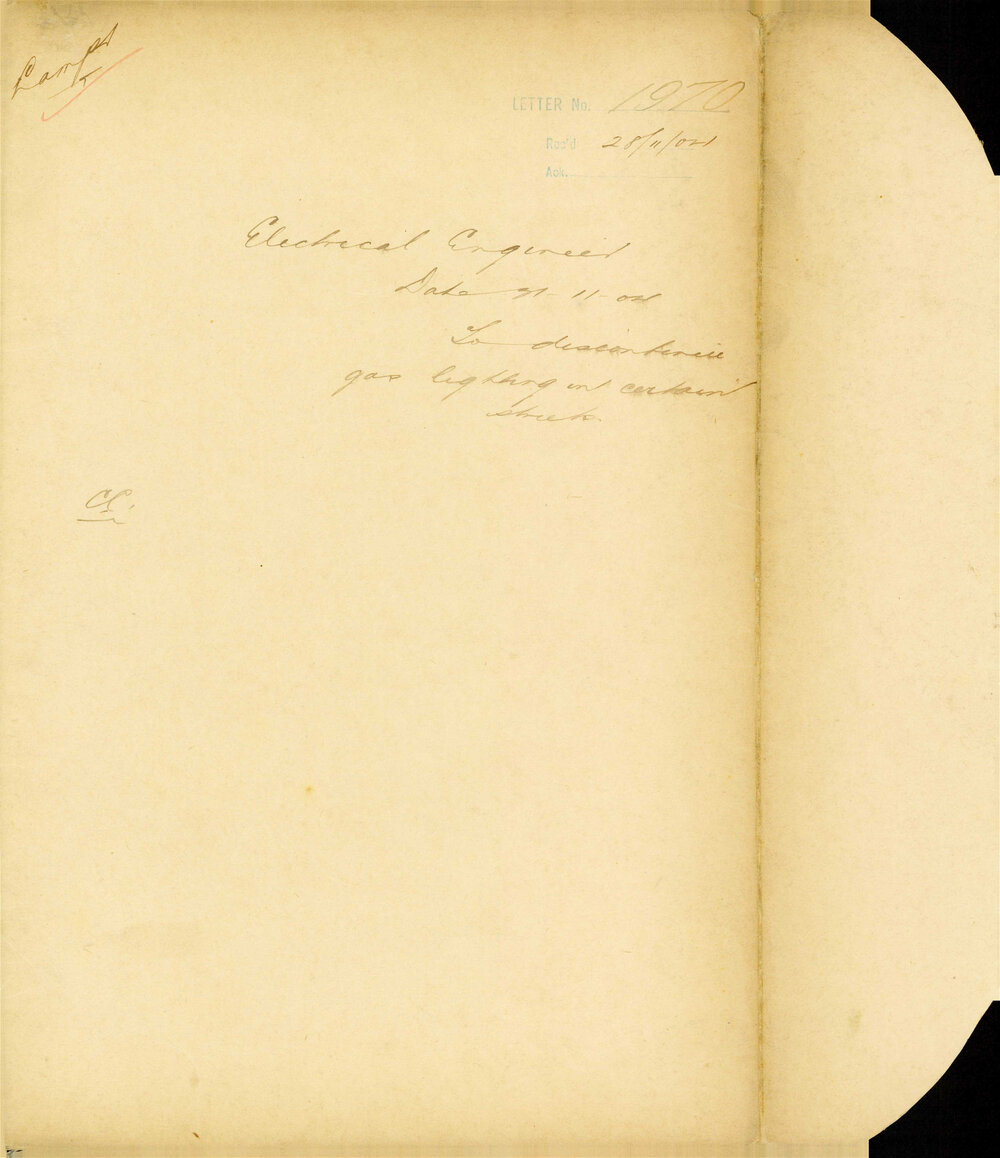 LETTER No. 1970
Rec'd 28/11/04
Ack.
Electrical Engineer
Date 21-11-04
To discontinue
gas lighting in certain
streets
CE.